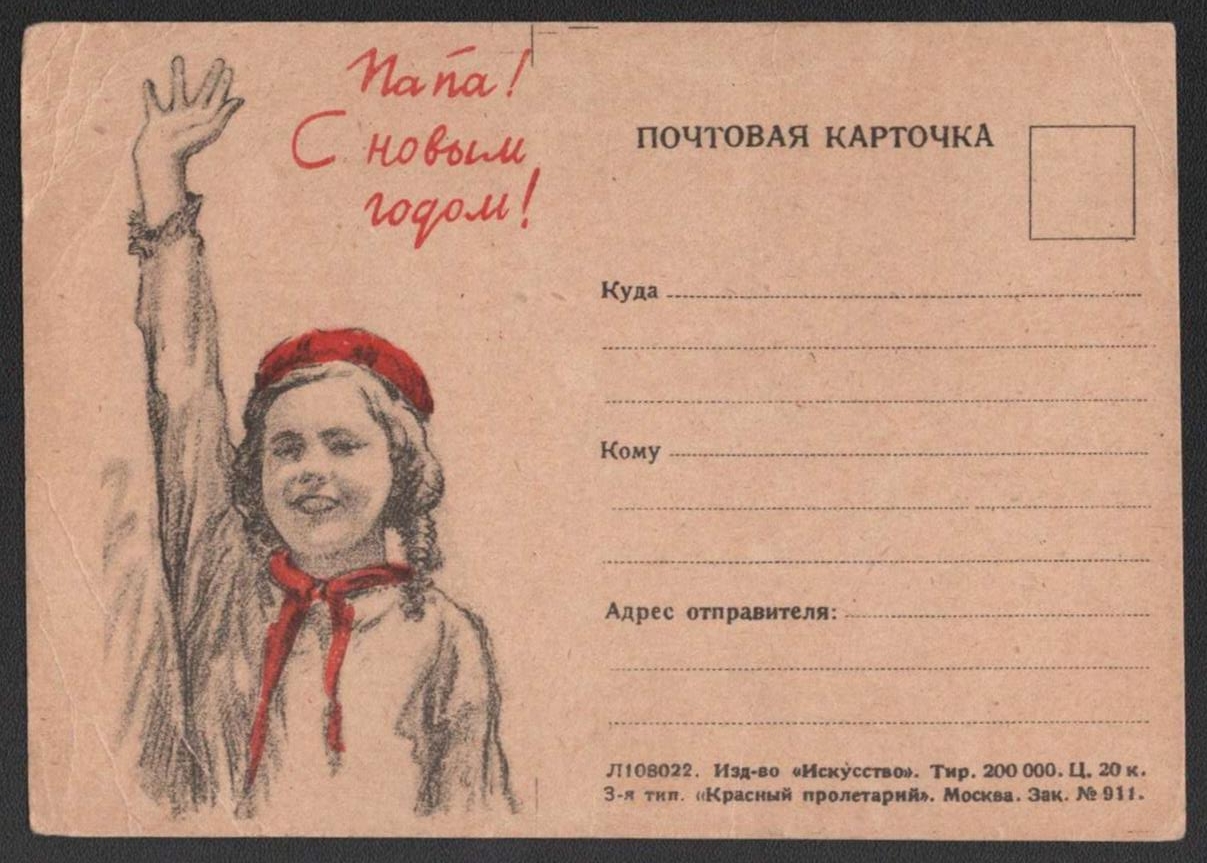 Папа!
С новым
годом!
ПОЧТОВАЯ КАРТОЧКА
Куда
Кому
Адрес отправителя:
Л108022. Изд-во «Искусство». Тир. 200 000. Ц. 20 к.
3-я тип. «Красный пролетарий». Москва. Зак. № 911.